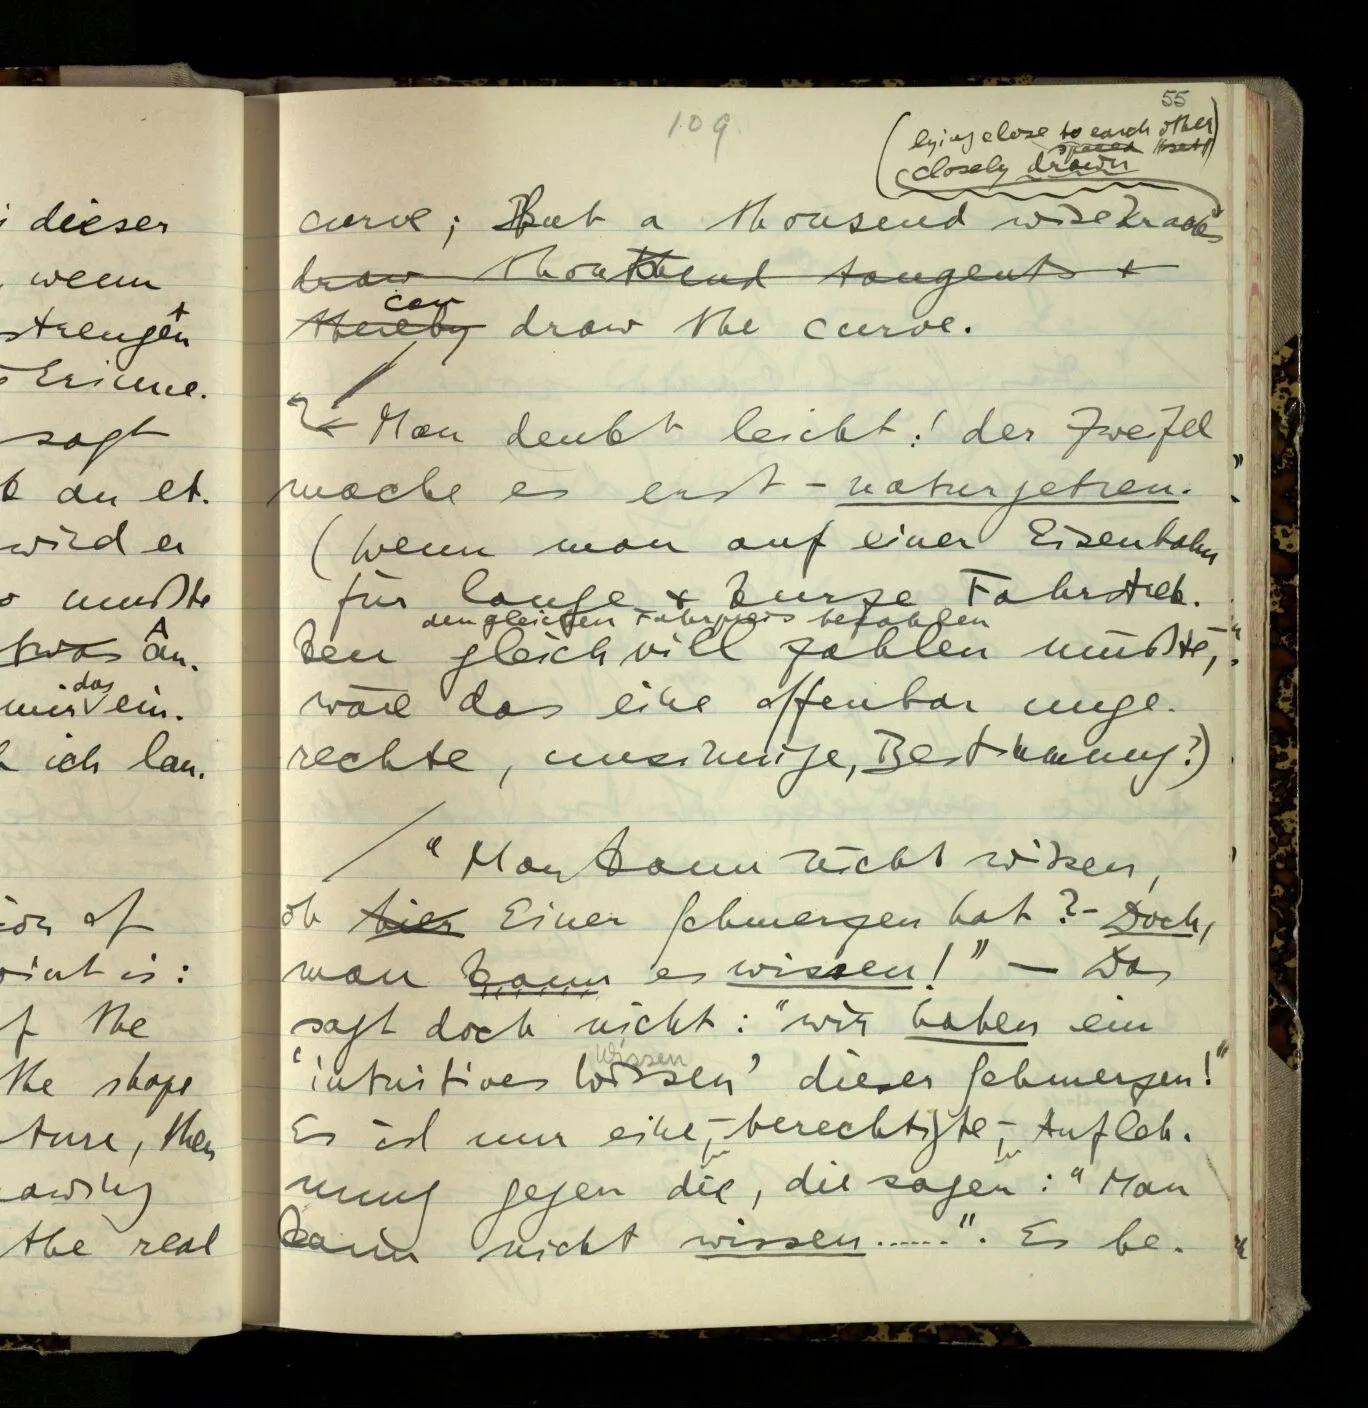 i dieser
wenn
strengen
Erinne.
sagt
an et.
wird er
mußte
etwas an.
mir das ein.
ich lan.
ion of
oint is:
of the
the shape
ture, then
awing
the real
55
109
(lying close to each other)
spaced
closely drawn
curve; But a thousend wisekracks
draw thousend tangents +
thereby can draw the curve.
Man denkt leicht: der Zweifel
mache es erst – naturgetreu.
(Wenn man auf einer Eisenbahn
für lange & kurze Fahrstrek.
den gleichen Fahrpreis bezahlen
ken gleichvill zahlen müßte,
wäre das eine offenbar unge.
rechte, unsinnige, Bestimmung?)
"Man kann nicht wissen,
ob hier Einer Schmerzen hat? – Doch,
man kann es wissen!" — Das
sagt doch nicht: "wir haben ein
Wissen
'intuitives Wissen' dieser Schmerzen!"
Es ist nur eine, – berechtigte –, Aufleh.
nung gegen die, die sagen: "Man
kann nicht wissen......". Es be.